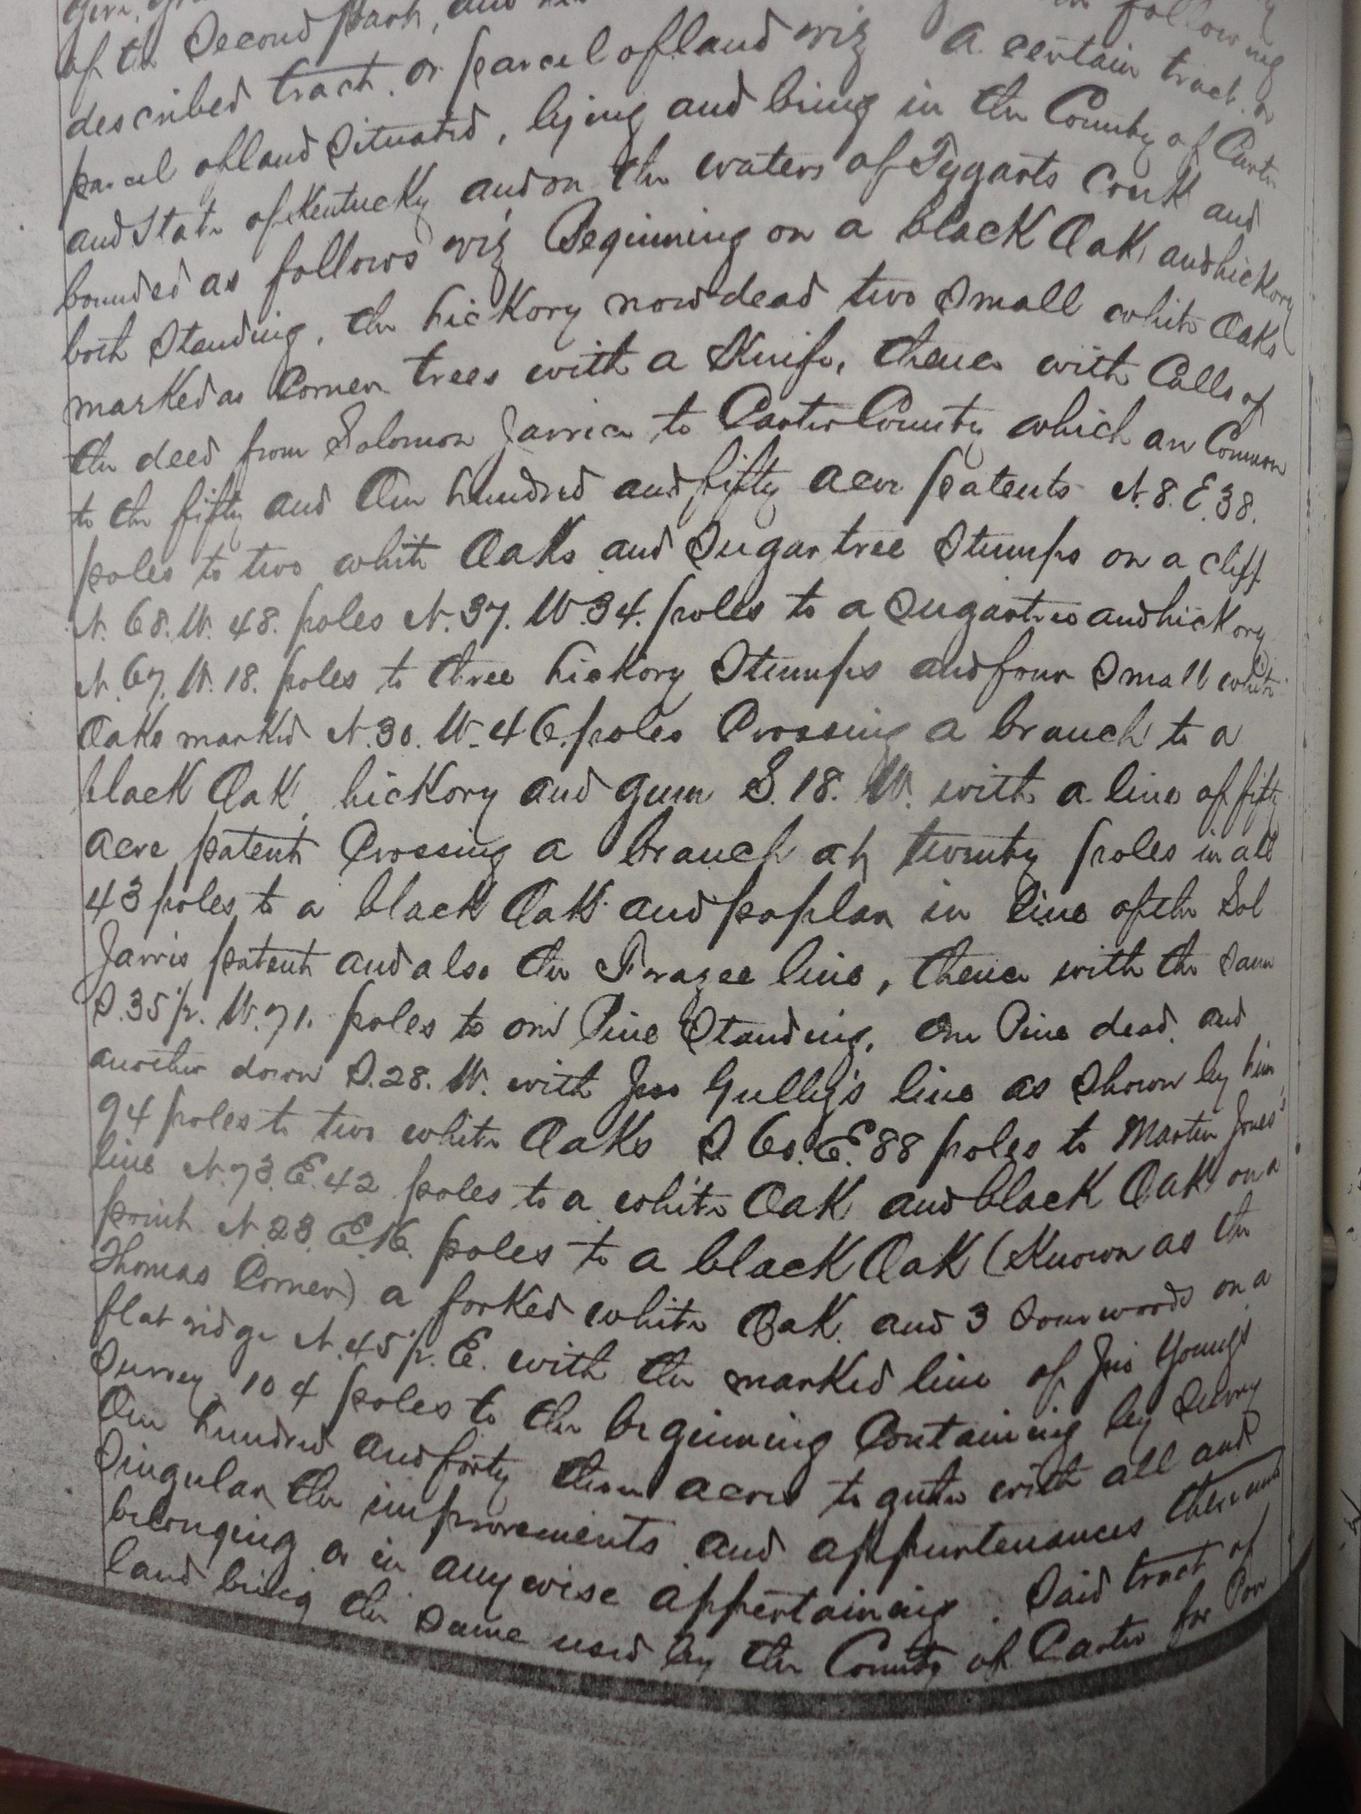 of the Second part, and following
described tract. or parcel of land viz A certain tract. or
parcel of land Situated, lying and being in the County of Carter
and State of Kentucky and on the waters of Tygarts Creek and
bounded as follows viz Beginning on a black Oak, and hickory
both Standing, the hickory now dead two Small white Oaks
marked as Corner trees with a Knife, thence with Calls of
the deed from Solomon Jarvice to Carter County which are Common
to the fifty and One hundred and fifty acre patents N. 8. E. 38.
poles to two white Oaks and Sugar tree Stumps on a cliff
N. 68. W. 48. poles N. 37. W. 34. poles to a Sugartree and hickory
N. 67. W. 18. poles to three hickory Stumps and four Small white
Oaks marked N. 30. W. 46. poles Crossing a branch to a
black Oak, hickory and gum S. 18. W. with a line of fifty
acre patent Crossing a branch at twenty poles in all
43 poles to a black Oak and poplar in line of the Sol
Jarvis patent and also the Frazee line, thence with the Same
S. 35 1/2. W. 71. poles to one Pine Standing, One Pine dead, and
another down S. 28. W. with Jess Gulley's line as Shown by him
94 poles to two white Oaks S 60. E. 88 poles to Martin Jones's
line N. 73. E. 42 poles to a white Oak and black Oak on a
point N. 23. E. 16. poles to a black Oak (Known as the
Thomas Corner) a forked white Oak and 3 Sourwoods on a
flat ridge N. 45 1/2. E. with the marked line of Jno Young's
Survey 104 poles to the beginning Containing by Survey
One hundred and forty three acres together with all and
Singular the improvements and appurtenances thereunto
belonging or in anywise appertaining. Said tract of
land being the Same used by the County of Carter for Poor